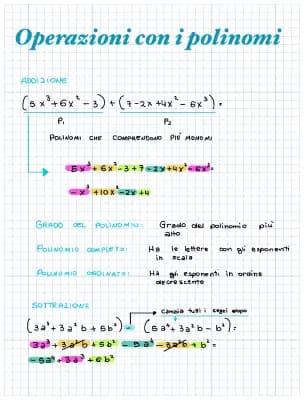 Operazioni con i polinomi
ADDIZIONE
(5x³+6x²-3)+(7-2x+4x²-6x³)=
P₁ P₂
POLINOMI CHE COMPRENDONO PIÙ MONOMI
5x³+6x²-3+7-2x+4x²-6x³=
-x³+10x²-2x+4
GRADO DEL POLINOMIO: Grado del polinomio più alto
POLINOMIO COMPLETO: Ha le lettere con gli esponenti in scala
POLINOMIO ORDINATO: Ha gli esponenti in ordine decrescente
SOTTRAZIONE
Cambia tutti i segni dopo
(3a³+3a²b+5b²)-(5a⁴+3a²b-b²)=
3a³+3a²b+5b²-5a⁴-3a²b+b²=
-5a⁴+3a³+6b²